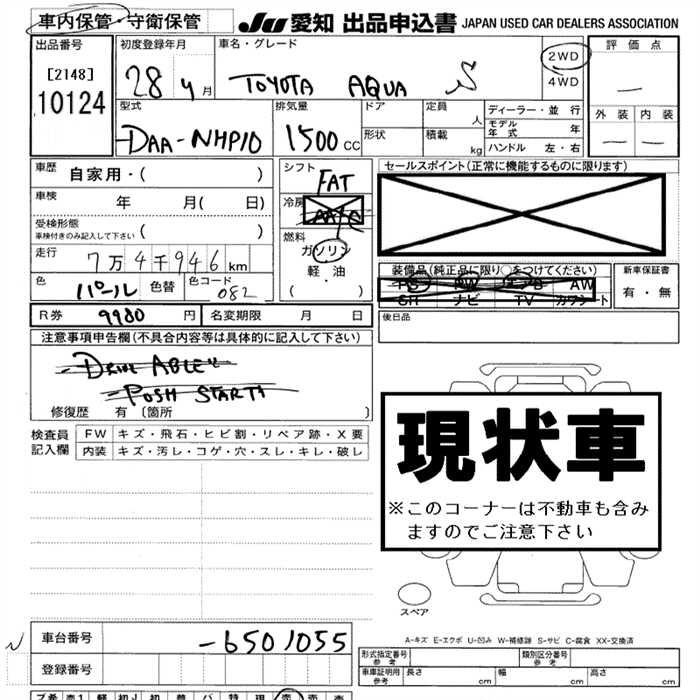 車内保管・守衛保管
JU 愛知 出品申込書 JAPAN USED CAR DEALERS ASSOCIATION
出品番号 初度登録年月 車名・グレード 評価点
[2148]
10124
28 4月 TOYOTA AQUA S
2WD
4WD
—
外装 内装
— —
型式 排気量 ドア 定員 人 ディーラー・並行
モデル年式 年
DAA-NHP10 1500cc 形状 積載 kg ハンドル 左・右
車歴 自家用・( )
シフト FAT
セールスポイント(正常に機能するものに限ります)
車検 年 月( 日)
冷房 AAC
受検形態
車検付きのみ記入して下さい ( )
燃料 ガソリン
軽・油
・( )
走行 7万4千946km
色 パール 色替 色コード 082
装備品(純正品に限り○をつけてください)
PS PW AW
SR ナビ TV カワシート
新車保証書
有・無
R券 9980円 名変期限 月 日
後日品
注意事項申告欄(不具合内容等は具体的に記入して下さい)
-DRIVE ABLE
-PUSH START
修復歴 有〔箇所 〕
検査員記入欄
FW キズ・飛石・ヒビ割・リペア跡・X要
内装 キズ・汚レ・コゲ・穴・スレ・キレ・破レ
現状車
※このコーナーは不動車も含み
ますのでご注意下さい
スペア
A-キズ E-エクボ U-凹み W-補修跡 S-サビ C-腐食 XX-交換済
車台番号 -6501055
登録番号
形式指定番号 参考 類別区分番号 参考
車庫証明用 参考 長さ cm 幅 cm 高さ cm